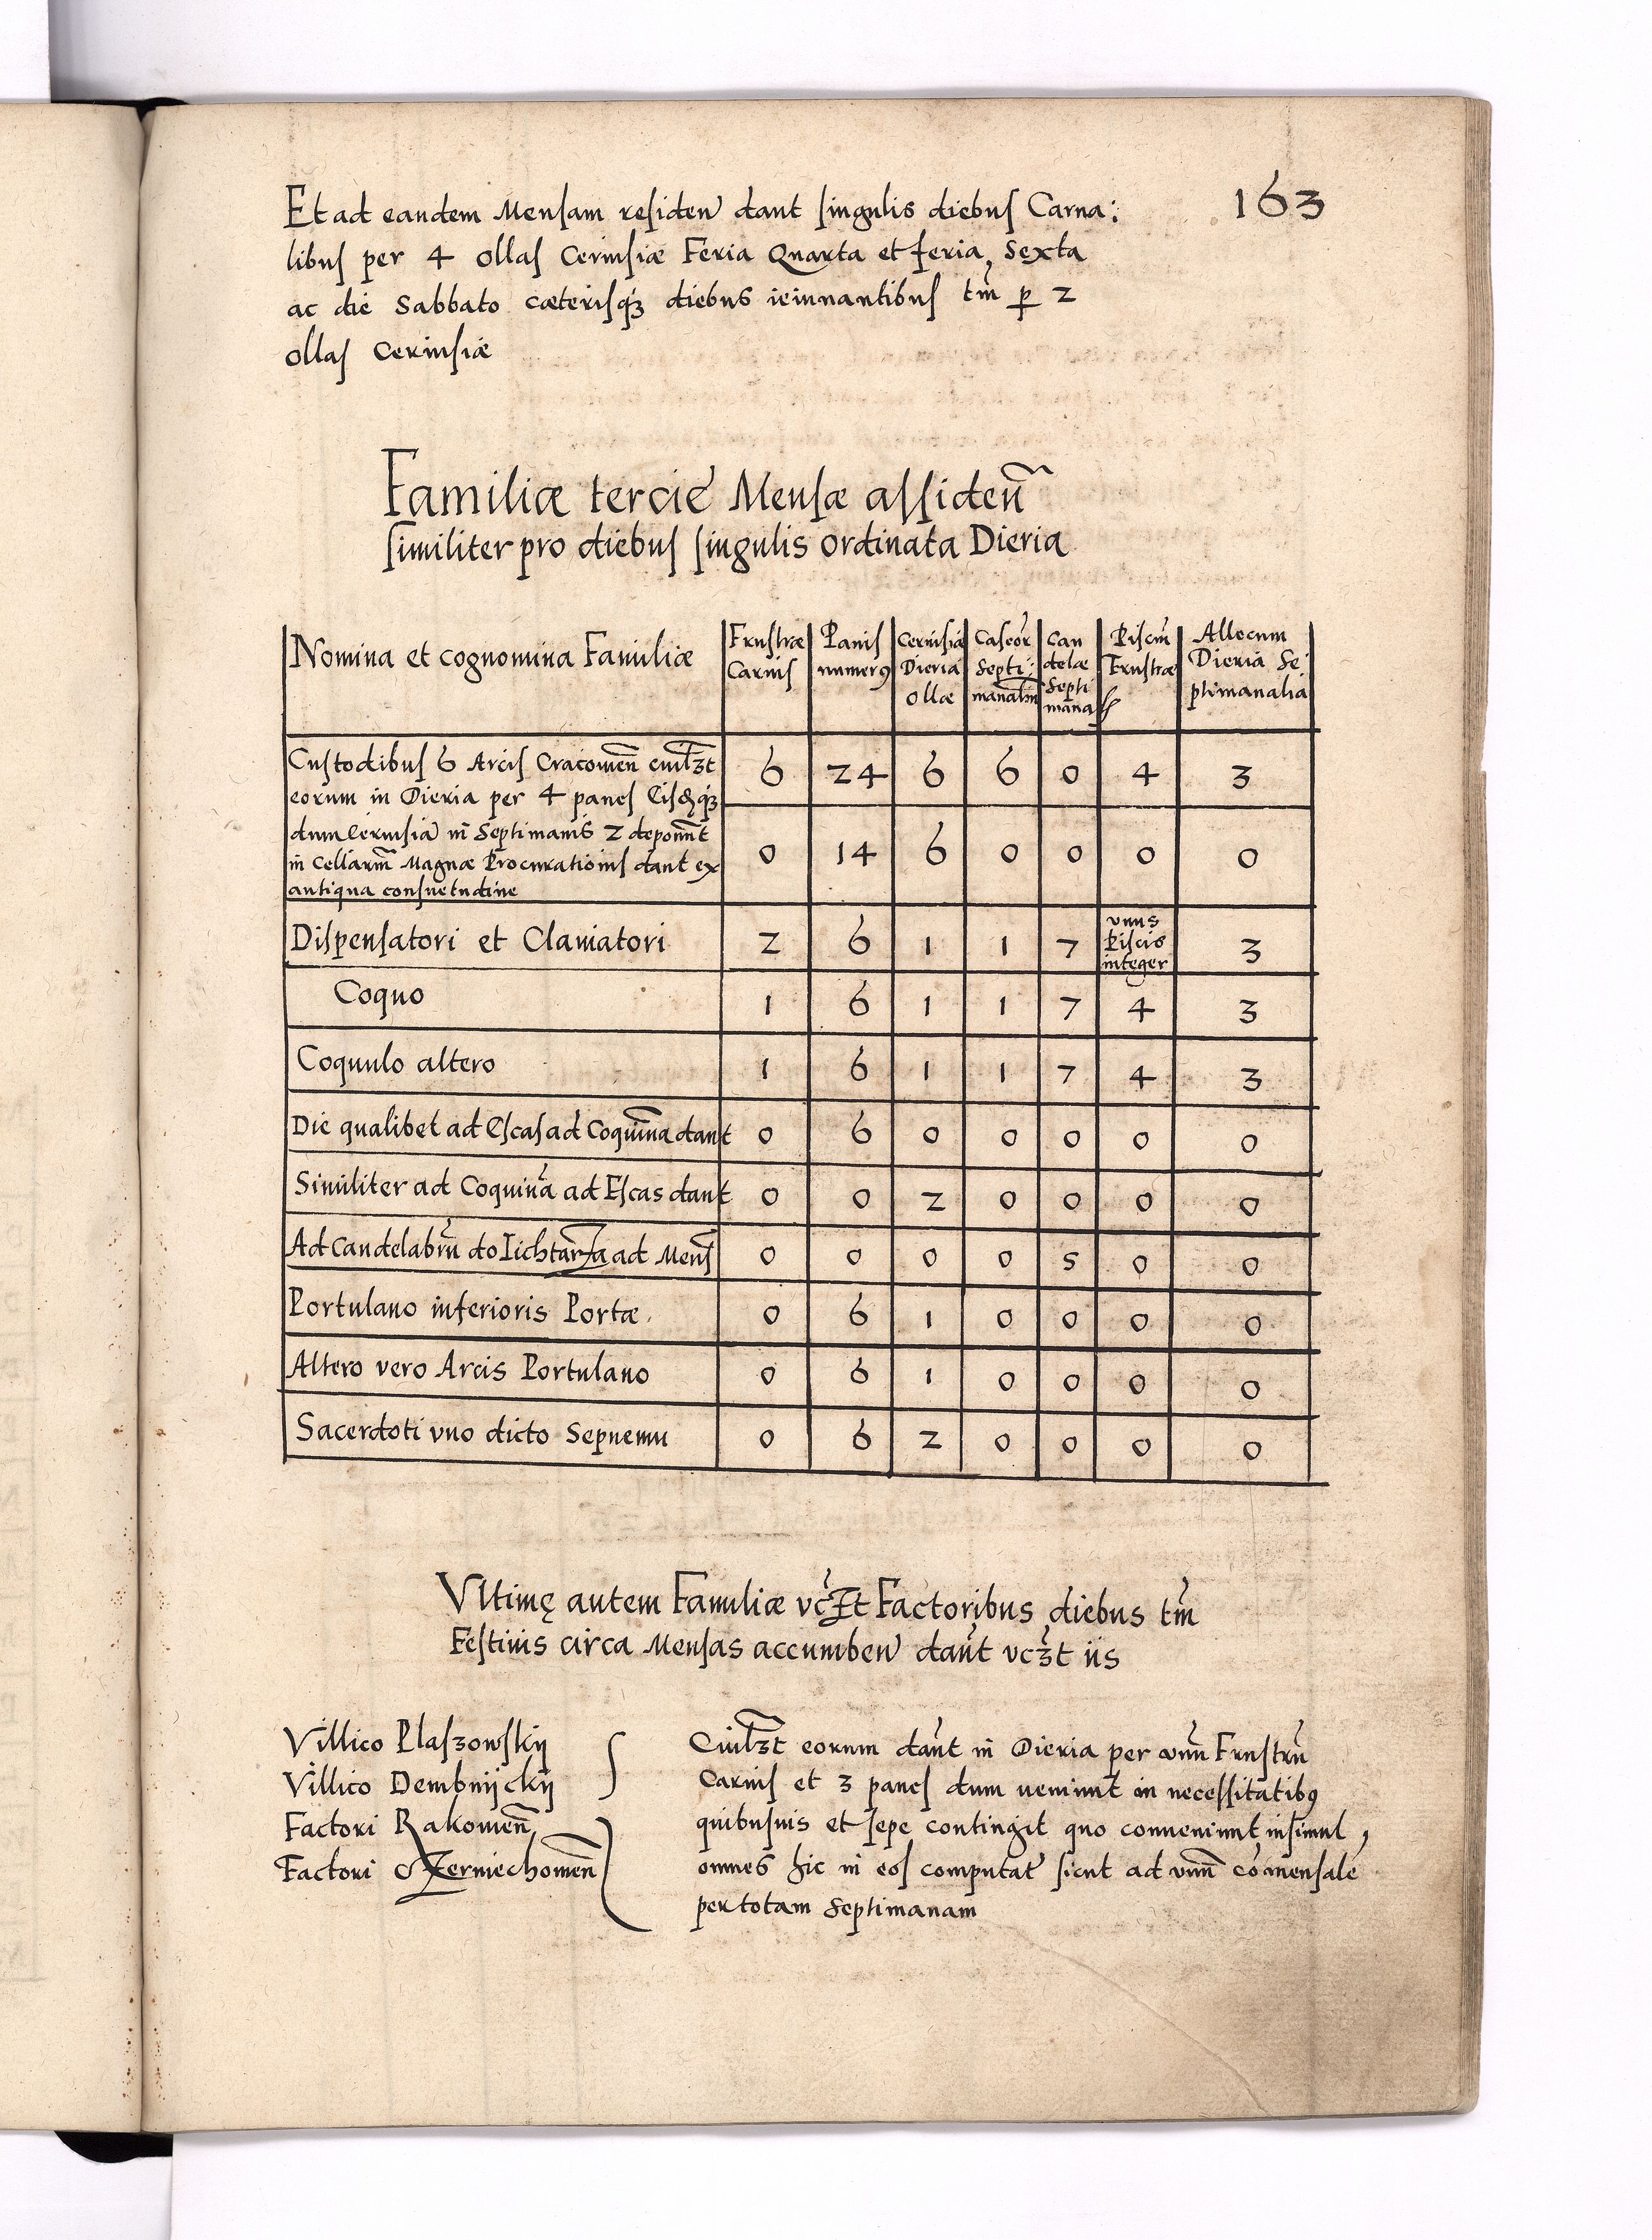 163
Et ad eandem Mensam residen dant singulis diebus Carna:
libus per 4 ollas Cerinsiæ Feria Quarta et feria, Sexta
ac die Sabbato cæterisq₃ diebus ieiunantibus tm̄ p 2
ollas Cerinsiæ
Familiæ tercie Mensæ assiden̄
similiter pro diebus singulis ordinata Dieria
Nomina et cognomina Familiæ | Frustræ Carnis | Panis numerꝰ | Cerinsia Dieria ollæ | Caseor̄ Septi: manaliū | Can delæ Septi mana | Pisciū Frustræ | Allecum Dieria Se: ptimanalia
Custodibus 6 Arcis Cracouien̄ cuil₃t | 6 | 24 | 6 | 6 | 0 | 4 | 3
eorum in Dieria per 4 panes
dum Ceruisia in Septimanis 2 deponūt | 0 | 14 | 6 | 0 | 0 | 0 | 0
in Cellariū Magnæ Procurationis dant ex
antiqua consuetudine
Dispensatori et Clauiatori | 2 | 6 | 1 | 1 | 7 | vnus Piscis integer | 3
Coquo | 1 | 6 | 1 | 1 | 7 | 4 | 3
Coquulo altero | 1 | 6 | 1 | 1 | 7 | 4 | 3
Die qualibet ad Escas ad Coquinā dant | 0 | 6 | 0 | 0 | 0 | 0 | 0
Similiter ad Coquinā ad Escas dant | 0 | 0 | 2 | 0 | 0 | 0 | 0
Ad Candelabrū do lichtarza ad Mens | 0 | 0 | 0 | 0 | 5 | 0 | 0
Portulano inferioris Portæ | 0 | 6 | 1 | 0 | 0 | 0 | 0
Altero vero Arcis Portulano | 0 | 6 | 1 | 0 | 0 | 0 | 0
Sacerdoti vno dicto Sepnemu | 0 | 6 | 2 | 0 | 0 | 0 | 0
Vltimę autem Familiæ vc₃t Factoribus diebus tm̄
Festiuis circa Mensas accumben dant vc₃t iis
Villico Plaszowskij
Villico Dembnijckij
Factori Rakouien̄
Factori Czerniechouien̄
Cuil₃t eorum dant in Dieria per vnū Frustrū
Carnis et 3 panes dum ueniunt in necessitatibꝰ
quibusuis et sepe contingit quo conueniunt insimul,
omnes hic in eos computat sicut ad vnū cōmensale
per totam Septimanam